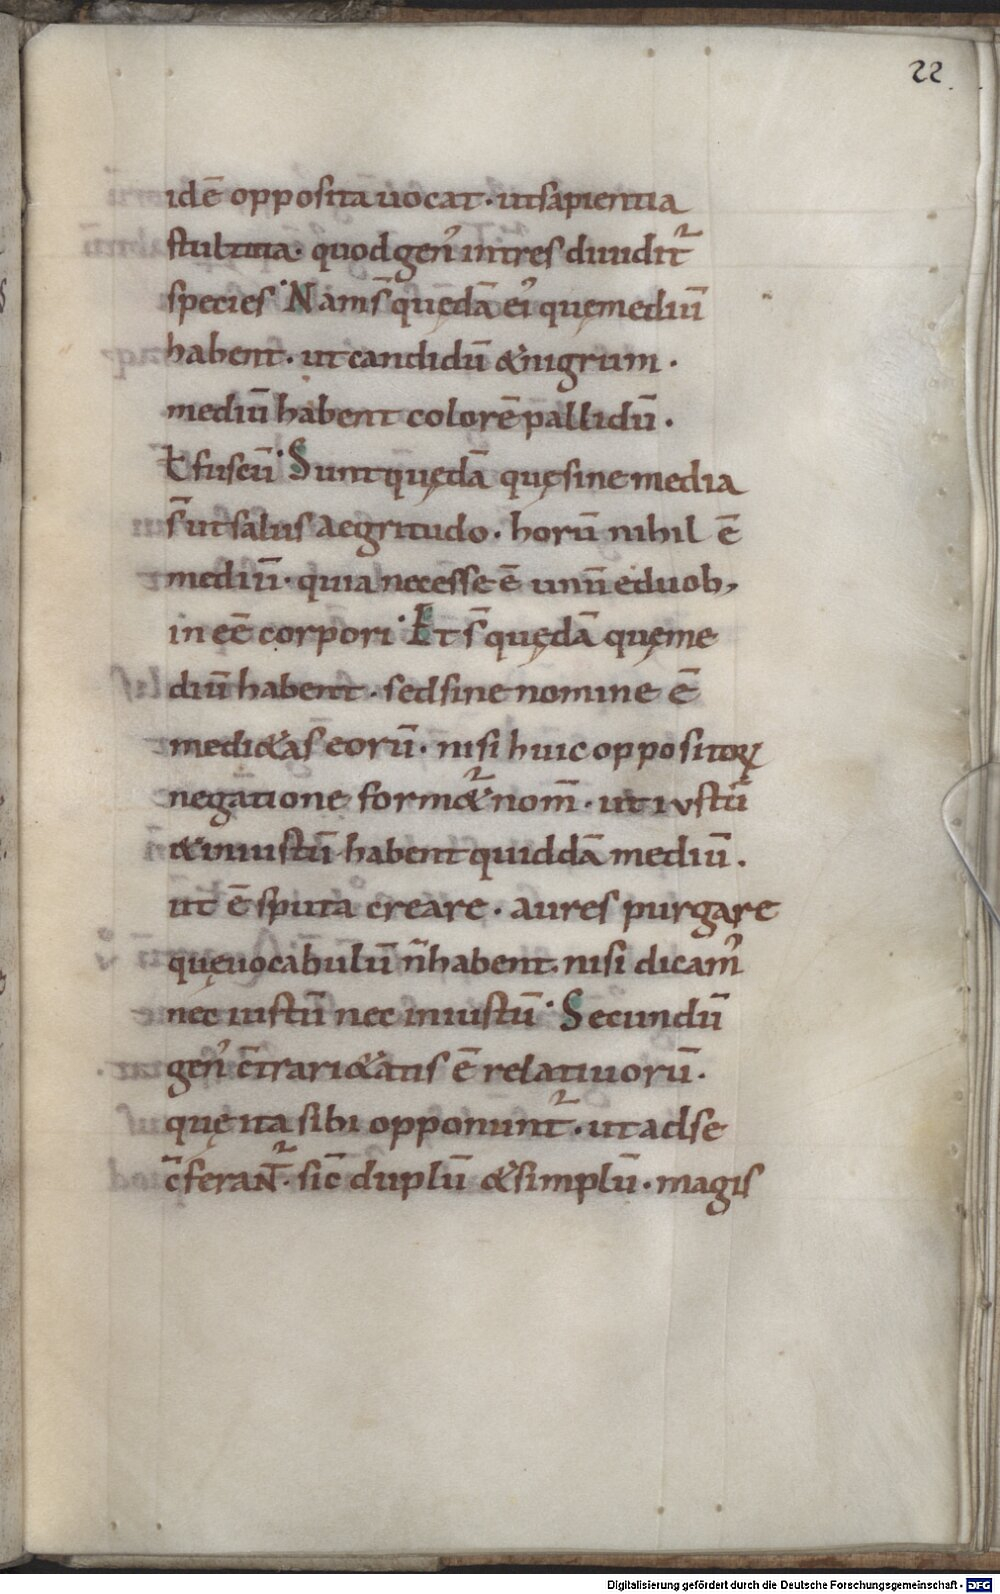 22
idē opposita uocat · ut sapientia
stultitia · quod gen᾽ in tres diuidit᷑
species · Nam s̄ quędā ei᾽ quę mediū
habent · ut candidū & nigrum ·
mediū habent colorē pallidū ·
ł fuscū · Sunt quędā quę sine media
s̄ ut salus aegritudo · horū nihil ē
mediū · quia necesse ē unū e duob,
in eē corpori · Et s̄ quędā quę me
diū habent · sed sine nomine ē
medi&as eorū · nisi huic oppositoꝝ
negatione form&᷑ nom̄ · ut iustū
& iniustū habent quiddā mediū ·
ut ē sputa creare · aures purgare
quę uocabulū n̄ habent · nisi dicam᾽
nec iustū nec iniustū · Secundū
gen᾽ c̄trari&atis ē relatiuorū ·
quę ita sibi opponunt᷑ · ut ad se
c̄ferant᷑ · sic̄ duplū & simplū · magis
Digitalisierung gefördert durch die Deutsche Forschungsgemeinschaft - DFG